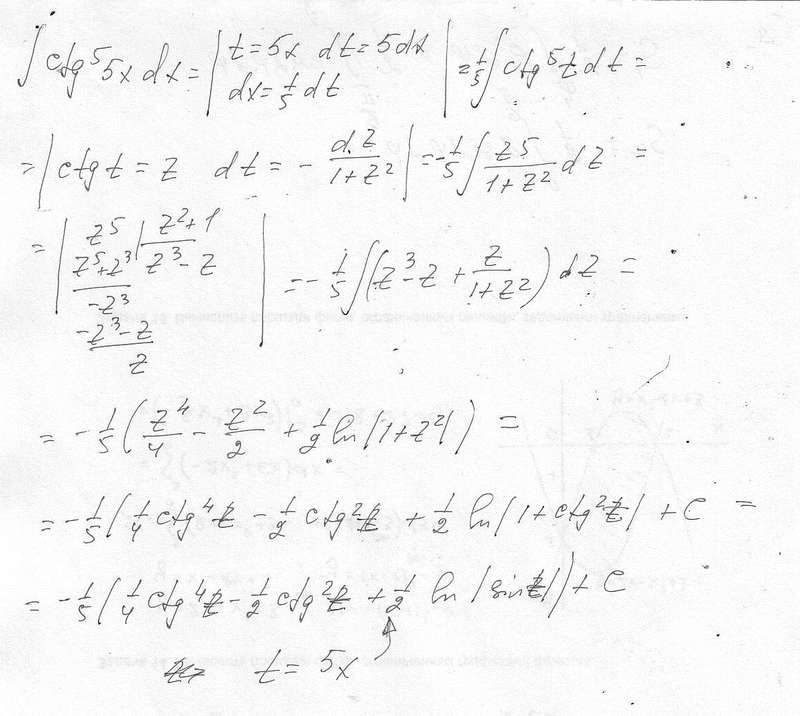 ∫ ctg⁵ 5x dx = | t = 5x dt = 5dx dx = 1/5 dt | = 1/5 ∫ ctg⁵ t dt =
= | ctg t = z dt = - dz/(1+z²) | = -1/5 ∫ z⁵/(1+z²) dz =
= | z⁵ | z²+1
z⁵+z³ | z³-z
-z³
-z³-z
z | = -1/5 ∫ (z³-z + z/(1+z²)) dz =
= -1/5 ( z⁴/4 - z²/2 + 1/2 ln|1+z²| ) =
= -1/5 ( 1/4 ctg⁴ t - 1/2 ctg² t + 1/2 ln|1+ctg² t| + C =
= -1/5 ( 1/4 ctg⁴ t - 1/2 ctg² t + 1/2 ln|sin t| ) + C
t = 5x